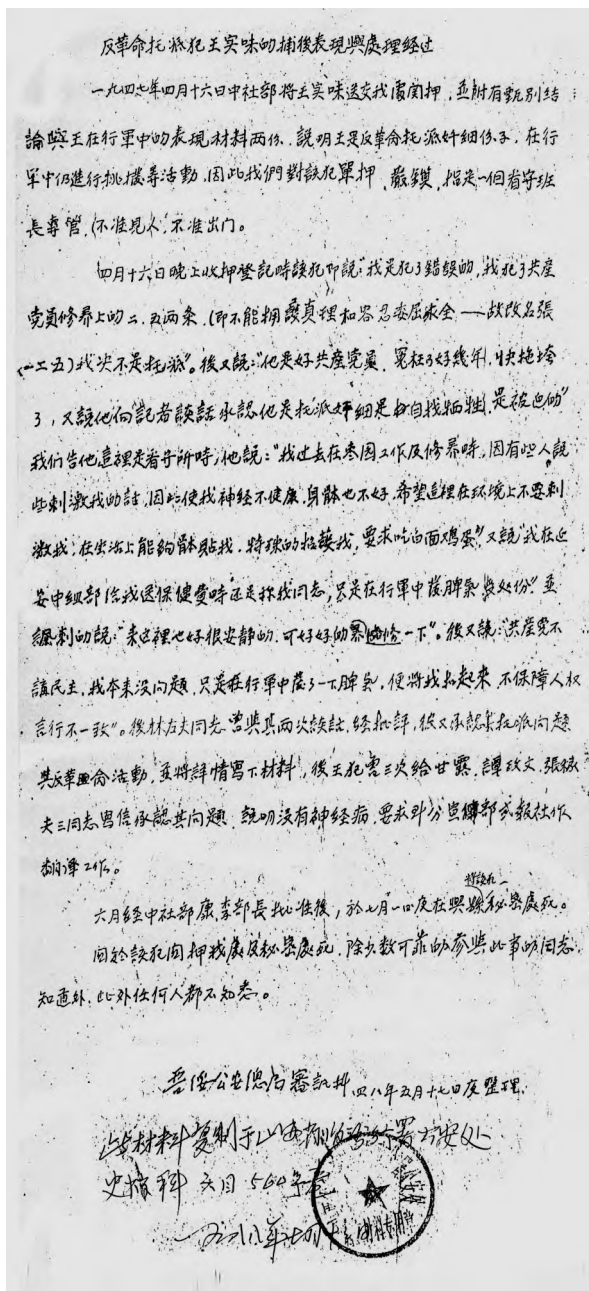 反革命托派犯王实味的捕後表現與處理经过
一九四七年四月十六日中社部将王实味送交我處関押,並附有甄别结
論與王在行軍中的表現材料两份.説明王是反革命托派奸細份子,在行
軍中仍進行挑撥等活動,因此我們對該犯單押、嚴鎖,指定一個看守班
長專管,(不准見人,不准出门。
四月十六日晚上收押登記時該犯即説:"我是犯了錯誤的,我犯了共產
党員修養上的二、五两条,(即不能拥護真理和容忍委屈求全——故改名張
(一二五)我决不是托派"。後又説:"他是好共產党員,冤枉了好幾年,快拖垮
了,又説他向記者談話承認他是托派奸細是由自我牺牲,是被迫的"
我們告他這裡是看守所時,他説:"我过去在枣园工作及修養時,因有些人説
些刺激我的話,因此使我神经不健康,身體也不好,希望這裡在环境上不要刺
激我,在生活上能夠體貼我,特殊的招護我,要求吃白面鸡蛋"又説"我在延
安中組部给我送保健費時还是称我同志,只是在行軍中發脾氣受处份"並
諷刺的説:"来這裡也好很安静的,可好好的养修一下"。後又説:"共產党不
講民主,我本来没问題,只是在行軍中發了一下脾氣,便将我扣起来,不保障人权
言行不一致"。後林左夫同志曾與其两次談話,经批評,彼又承認其托派问題
與反革命活動,並将詳情寫下材料,後王犯寫三次给甘露、譚政文、張
夫三同志寫信承認其问題,説明没有神经病,要求到分宣傳部或報社作
翻译工作。
六月经中社部康李部長批准後,於七月一日夜在興縣将該犯秘密處死。
関於該犯関押我處及秘密處死,除少数可靠的参與此事的同志
知道外,此外任何人都不知悉。
晋绥公安總局審訊科 四八年五月十七日夜整理.
此材料复制于山西行署公安处
史档科 564
一九八八年